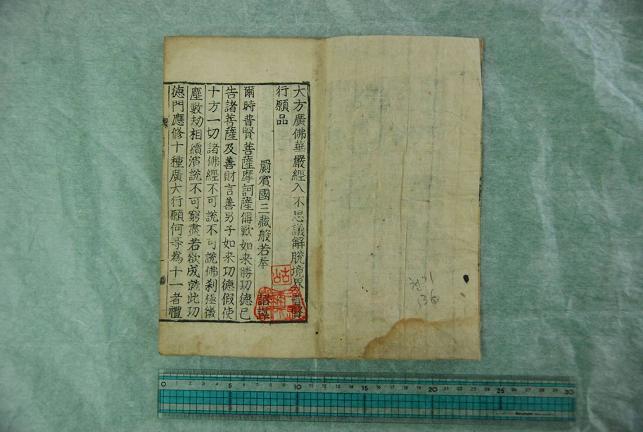 大方廣佛華嚴經入不思議解脫境界普賢
行願品
罽賓國三藏般若奉 詔譯
爾時普賢菩薩摩訶薩偁歎如来勝功德已
告諸菩薩及善財言善男子如来功德假使
十方一切諸佛經不可說不可說佛刹極微
塵數劫相續演說不可窮盡若欲成就此功
德門應修十種廣大行願何等爲十一者禮
0 5 10 15 20 25 30